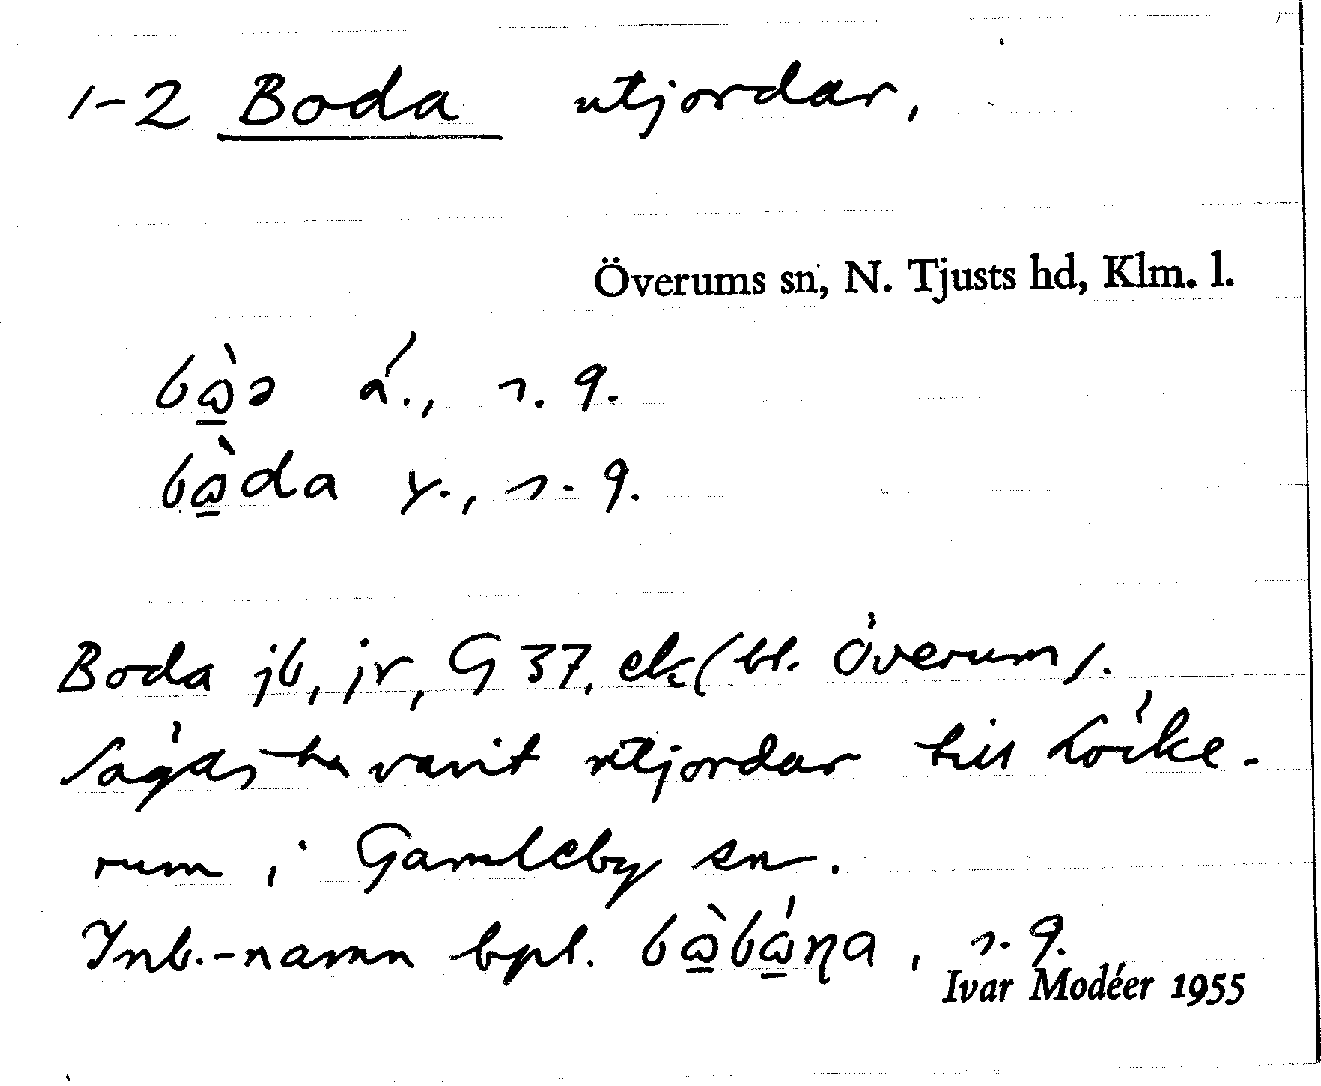 1-2 Boda utjordar,
Överums sn, N. Tjusts hd, Klm. l.
bὼ̲ə ä́., s. 9.
bὼ̲da y., s. 9.
Boda jb, jr, G 37, ek (bl. Överum).
Sägas ha varit utjordar till Löcke-
rum i Gamleby sn.
Inb.-namn bpl. bὼ̲bώ̲ɳa, s. 9.
Ivar Modéer 1955